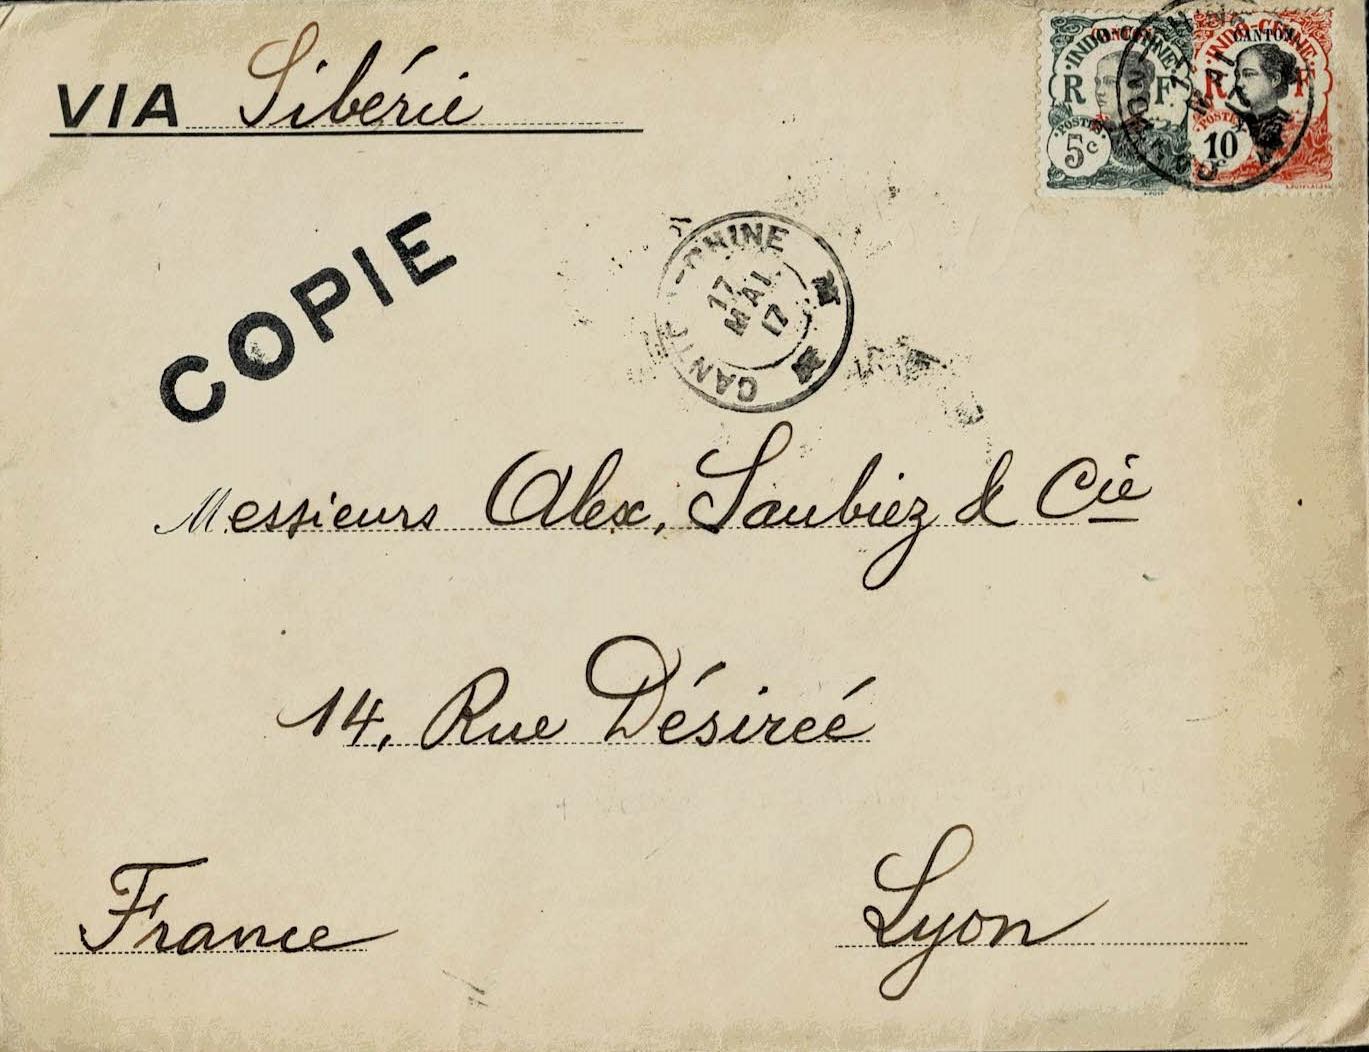 VIA Sibérie
INDO-CHINE INDO-CHINE
CANTON CANTON
R F R F
POSTES POSTES
5c 10
COPIE
CHINE
17
MAI
17
Messieurs Alex, Saubiez & Cie
14, Rue Désireé
France Lyon